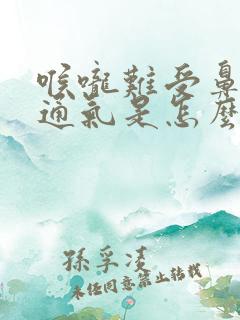 喉嚨難受鼻
通氣是怎麼
孫孚凌
未經同意禁止轉載